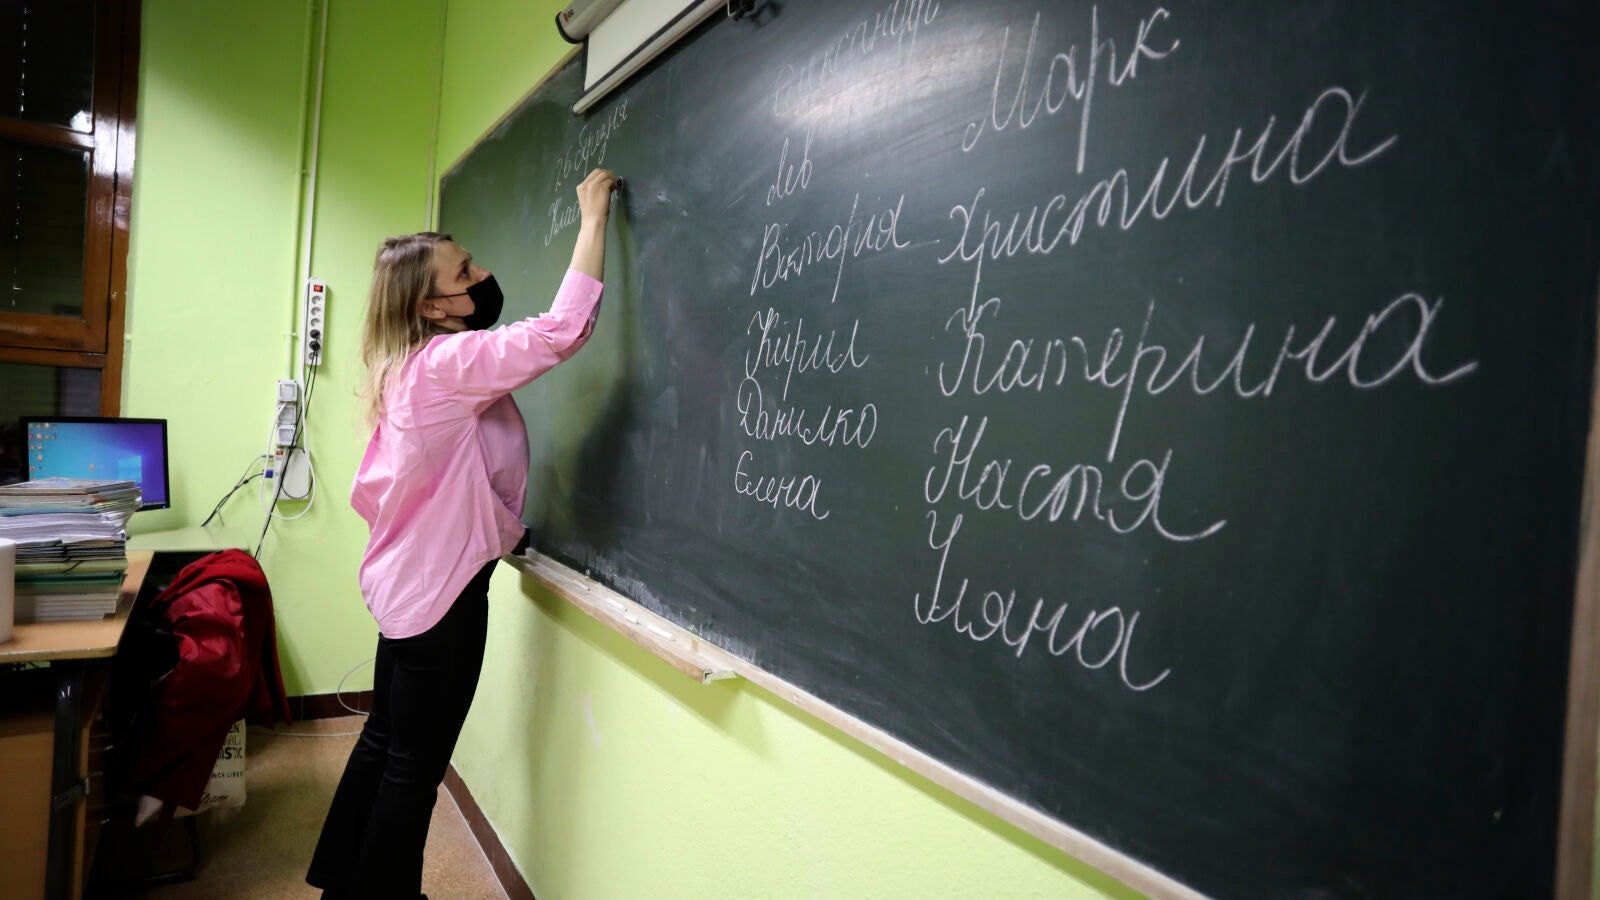 26 березня
Олександр
Лев
Вікторія
Кирил
Данилко
Єлена
Марк
Христина
Катерина
Настя
Уляна